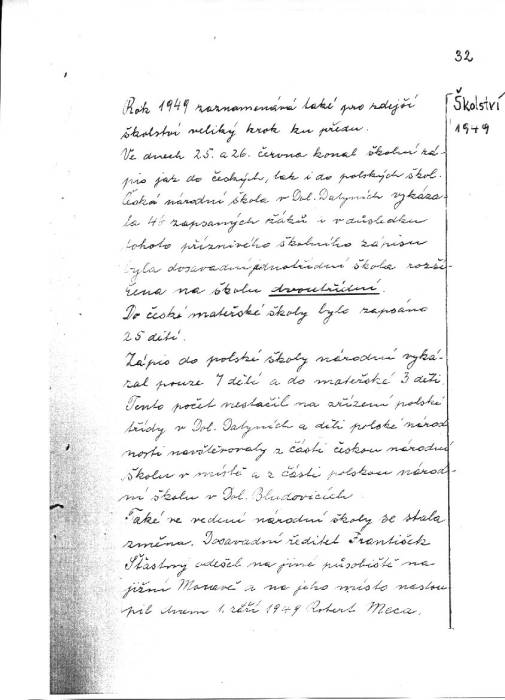 32
Školství
1949
Rok 1949 zaznamenává také pro zdejší
školství veliký krok ku předu.
Ve dnech 25. a 26. června konal školní zá-
pis jak do českých, tak i do polských škol.
Česká národní škola v Dol. Datyních vykáza-
la 46 zapsaných žáků i v důsledku
tohoto příznivého školního zápisu
byla dosavadní jednotřídní škola rozší-
řena na školu dvoutřídní.
Do české mateřské školy bylo zapsáno
25 dětí.
Zápis do polské školy národní vyká-
zal pouze 7 dětí a do mateřské 3 děti.
Tento počet nestačil na zřízení polské
třídy v Dol. Datyních a děti polské národ-
nosti navštěvovaly z části českou národní
školu v místě a z části polskou národ-
ní školu v Dol. Bludovicích.
Také ve vedení národní školy se stala
změna. Dosavadní ředitel František
Šťastný odešel na jiné působiště na
jižní Moravě a na jeho místo nastou-
pil dnem 1. září 1949 Robert Meca.